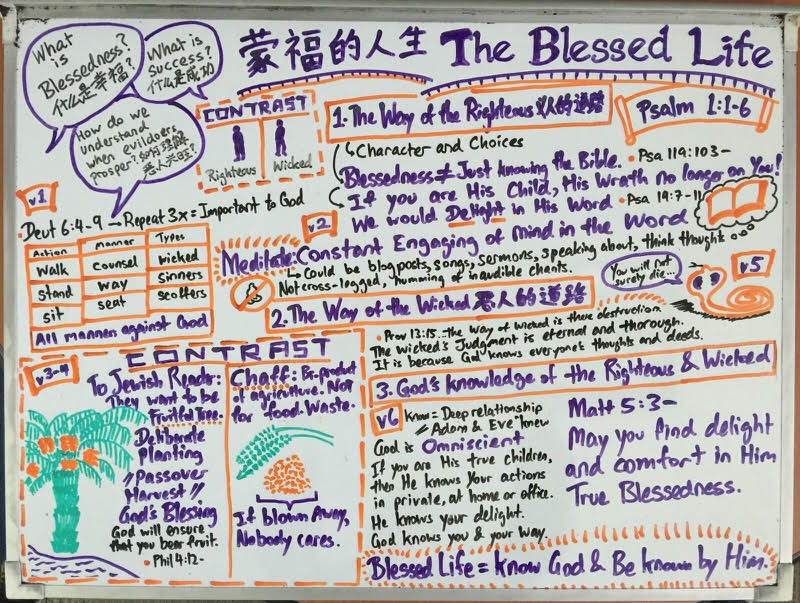 蒙福的人生 The Blessed Life
What
is
Blessedness?
什么是幸福?
What is
Success?
什么是成功
How do we
understand
when evildoers
prosper? 如何理解
恶人兴旺?
CONTRAST
Righteous
Wicked
1. The Way of the Righteous 义人的道路
Psalm 1:1-6
Character and Choices
Blessedness ≠ Just knowing the Bible. • Psa 119:103-
If you are His Child, His Wrath no longer on You!
We would Delight in His Word • Psa 19:7-11
v1
Deut 6:4-9 → Repeat 3x = Important to God
Action Manner Types
Walk counsel wicked
stand way sinners
sit seat scoffers
All manners against God
v2
Meditate: Constant Engaging of mind in the Word
Could be blogposts, songs, sermons, speaking about, think thoughts...
Not cross-logged, humming of inaudible chants.
You will not
surely die...
v5
2. The Way of the Wicked 恶人的道路
• Prov 13:15... The way of wicked is there destruction
The wicked's Judgment is eternal and thorough.
It is because God knows everyone's thoughts and deeds.
CONTRAST
v3-4
To Jewish Reader:
They want to be
Fruitful Tree.
Deliberate
Planting
// Passover
Harvest //
God's Blessing
God will ensure
that you bear fruit.
• Phil 4:12-
Chaff: By-product
of agriculture. Not
for food. Waste.
If blown Away,
Nobody cares.
3. God's knowledge of the Righteous & Wicked
v6
Know = Deep relationship
// Adam & Eve "knew
God is Omniscient
If you are His true children,
then He knows Your actions
in private, at home or office.
He knows your delight.
God knows you & your way.
Matt 5:3-
May you find delight
and comfort in Him
True Blessedness.
Blessed Life = know God & Be known by Him.